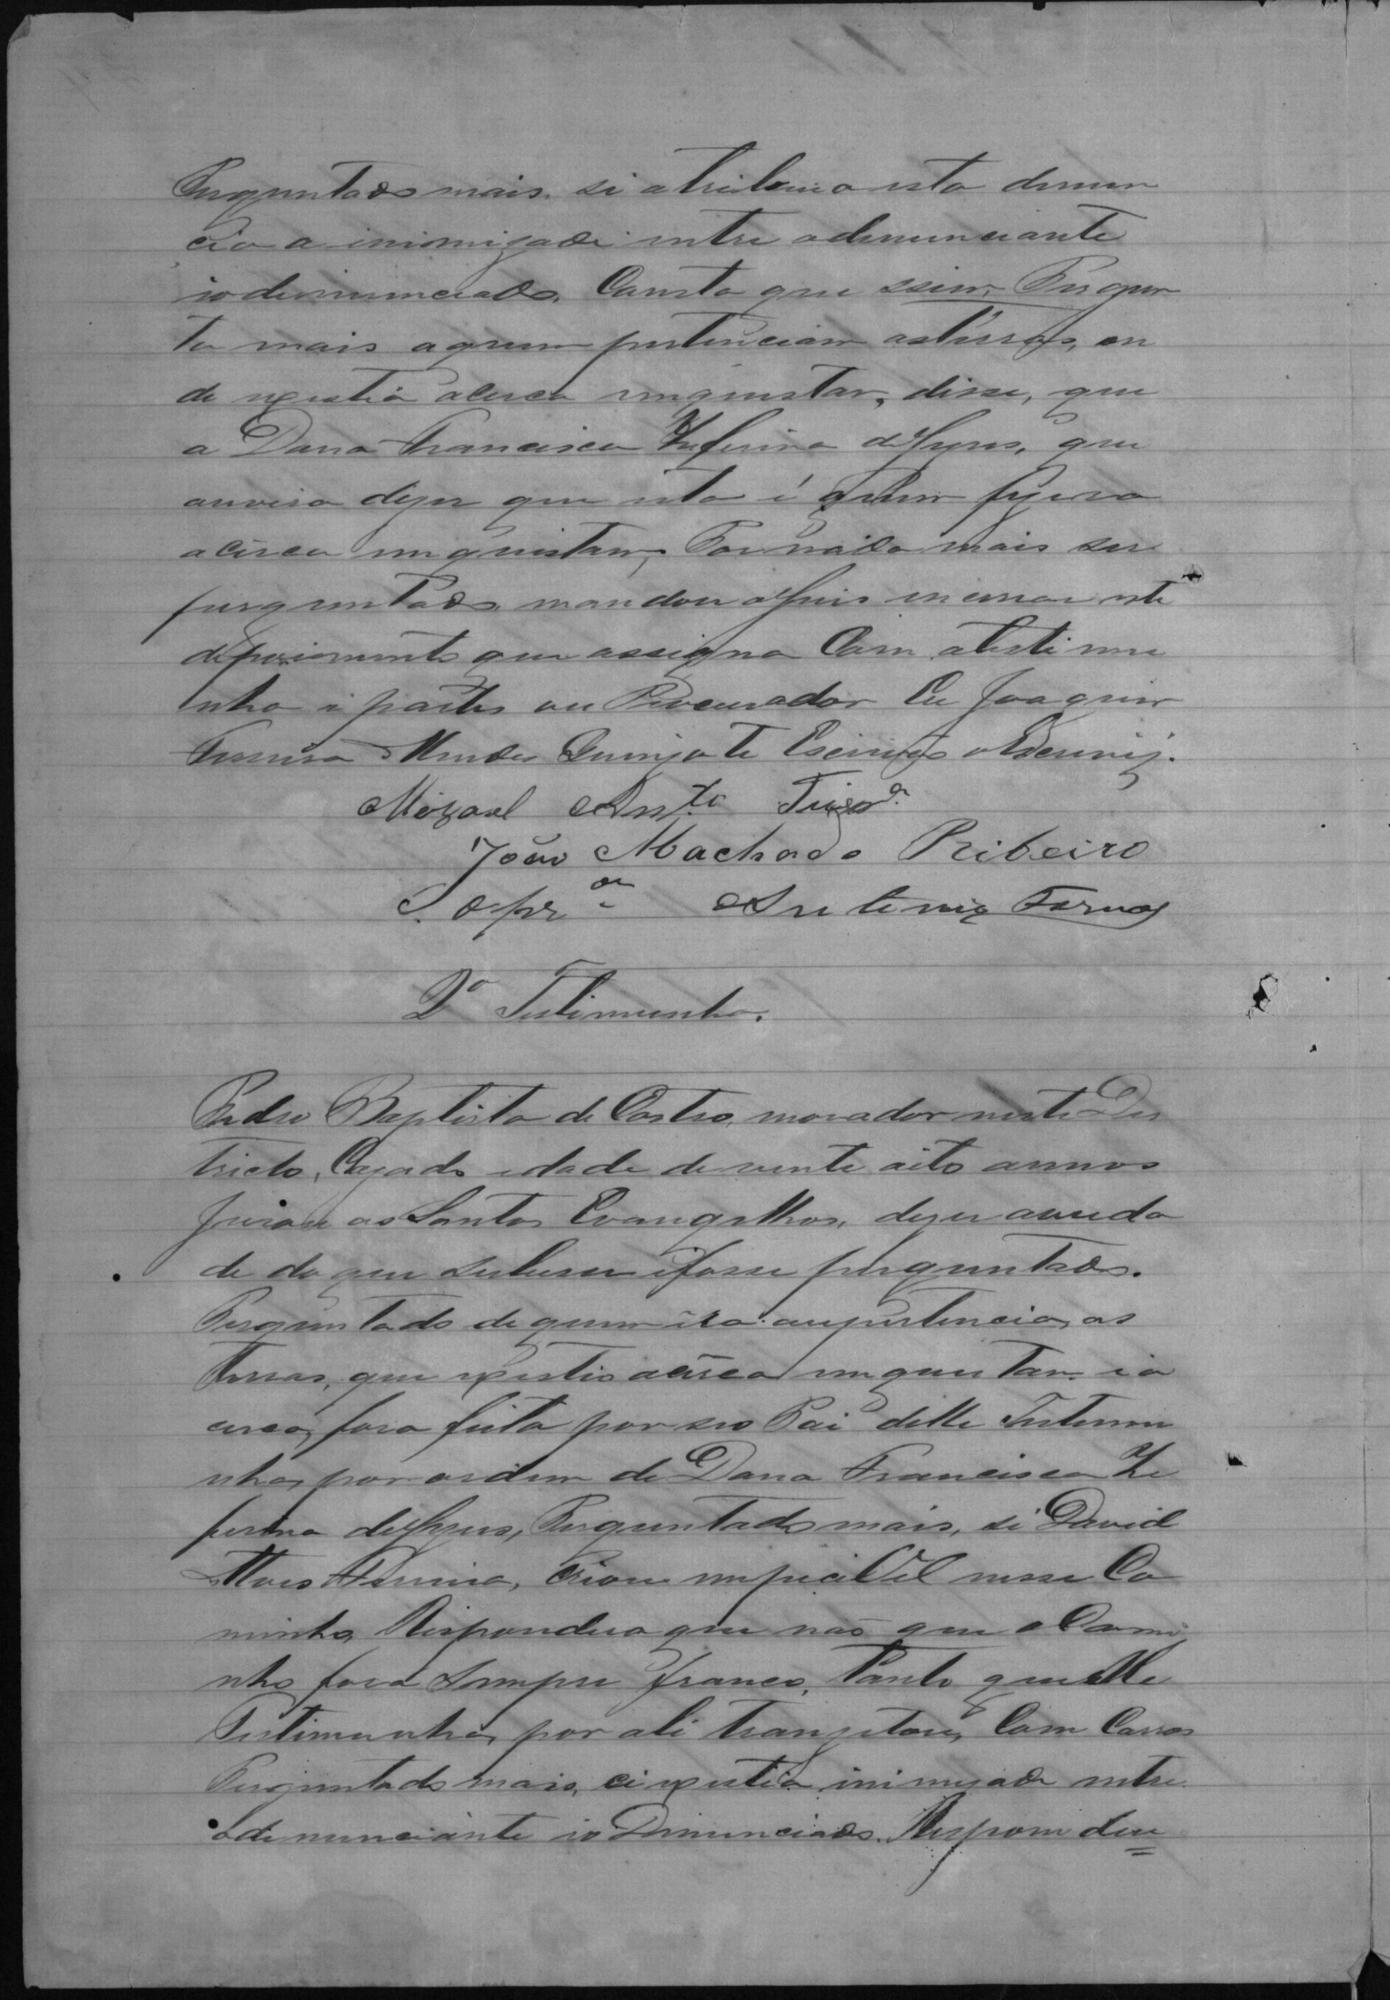 Perguntado mais, si atribuia esta denun
cia a inimizade entre a denunciante
io denunciado, Consta que ssim, Pergun
ta mais a quem pertenciam asterras, on
de existia acerca em questan, disse, que
a Dona Francisca Zeferina de Jesus, que
ouvira dizer que esta é quem fizera
acêrca em questam, Por nada mais ser
perguntado mandou o Juis encerrar este
depoiomento que assigna Com atestimu
nha i partes ou Procurador Eu Joaquim
Ferreira Mendes Escrivão o Escrevij.
Mizael Ant.to
João Machado Ribeiro
O pr.or Antonio
2ª Testimunha.
Pedro Baptista de Castro, morador neste Des
tricto, Cazado idade de vente oito annos
Jurou aos Santos Evangelhos, dizer averda
de do que subesse i fosse perguntado.
Perguntado de quem éra aupertencia, as
terras, que existio acêrca em questam i a
cerca, fora feita por seo Pai delle Testemu
nha, por ordem de Dona Francisca Ze
ferina de Jesus, Perguntado mais, si David
Alves Ferreira, nesse Ca
minho, Respondeo que não que o Cami
nho fora sempre franco, tanto quelle
Testimunha, por ali tranzitou, Com Carros
Perguntado mais, ci existia inimizade entre
adenunciante io Denunciado. Respondeu